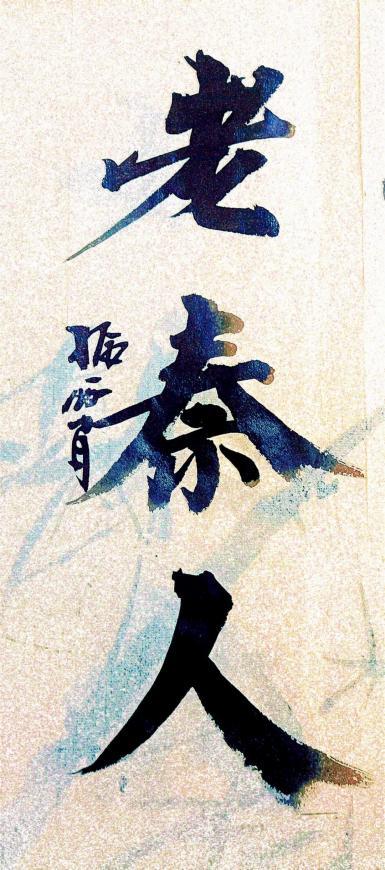 老秦人